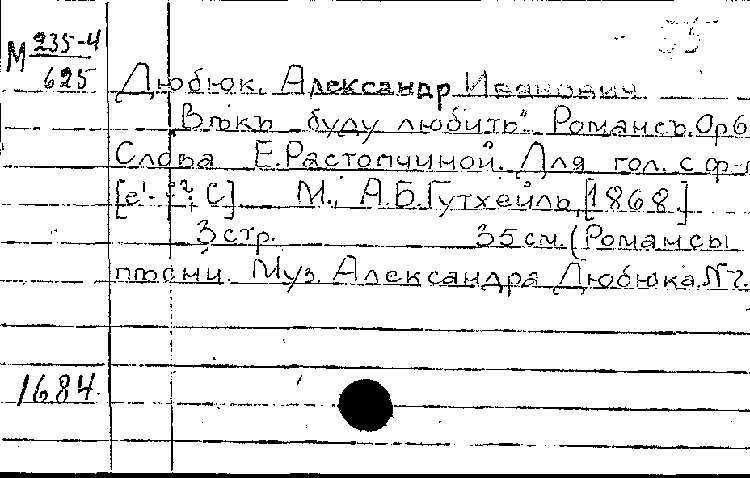 М 235-4
625
Дюбюк, Александр Иванович.
Вѣкъ буду любить". Романсъ. Ор6
Слова Е. Растопчиной. Для гол. с ф-
[e¹- ; С] М., А.Б. Гутхейль, [1868.]
3 стр. 35 см. (Романсы
пѣсни. Муз. Александра Дюбюка. №
1684.